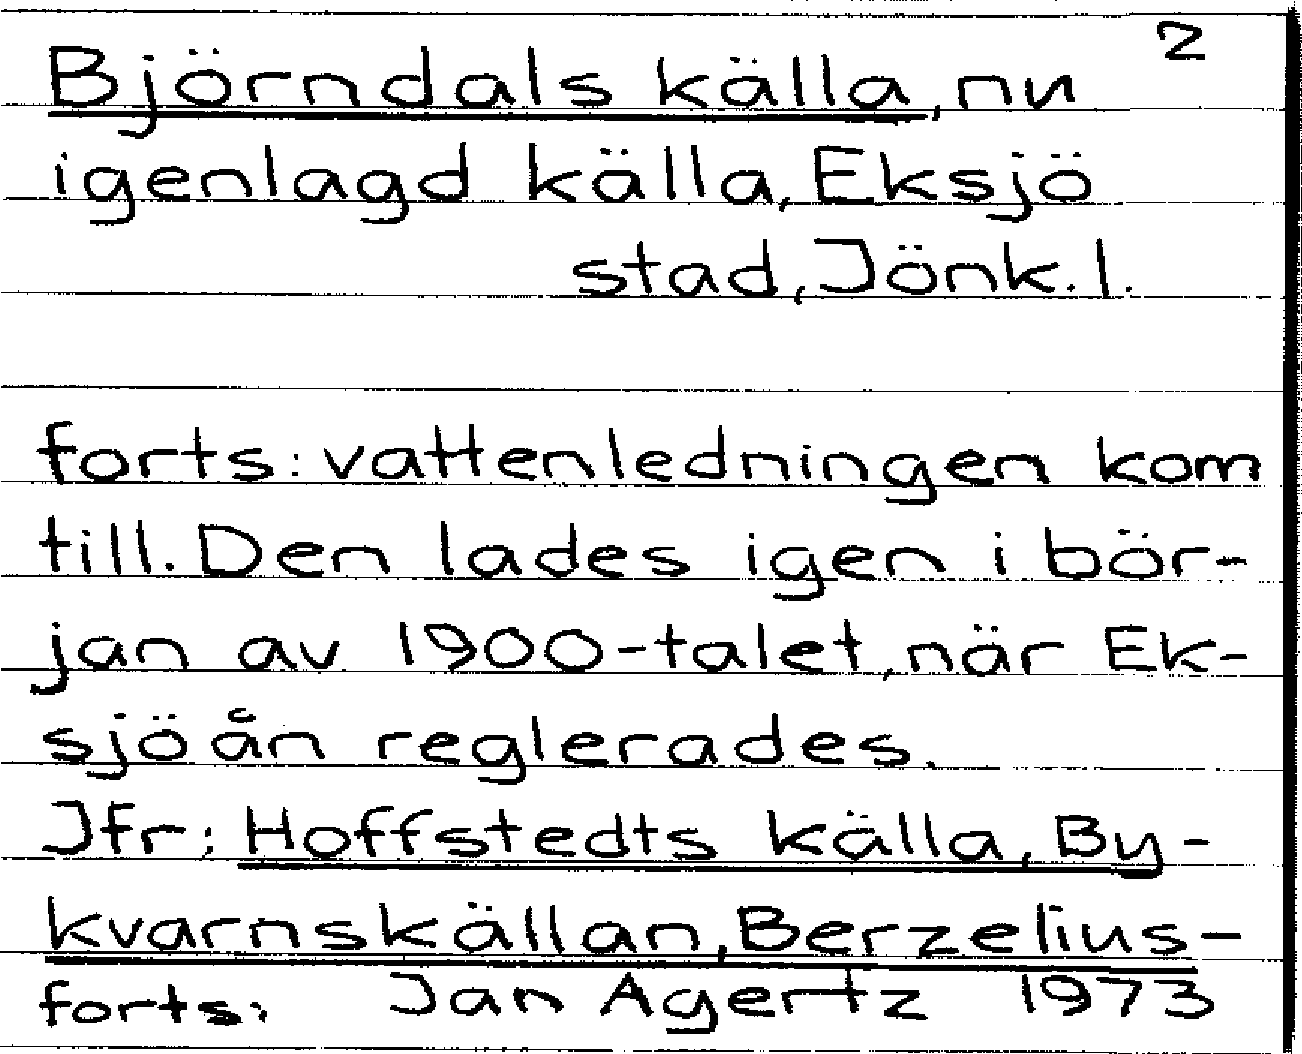 2
Björndals källa, nu
igenlagd källa, Eksjö
stad, Jönk. l.
forts: vattenledningen kom
till. Den lades igen i bör-
jan av 1900-talet, när Ek-
sjöån reglerades.
Jfr: Hoffstedts källa, By-
kvarnskällan, Berzelius-
forts: Jan Agertz 1973